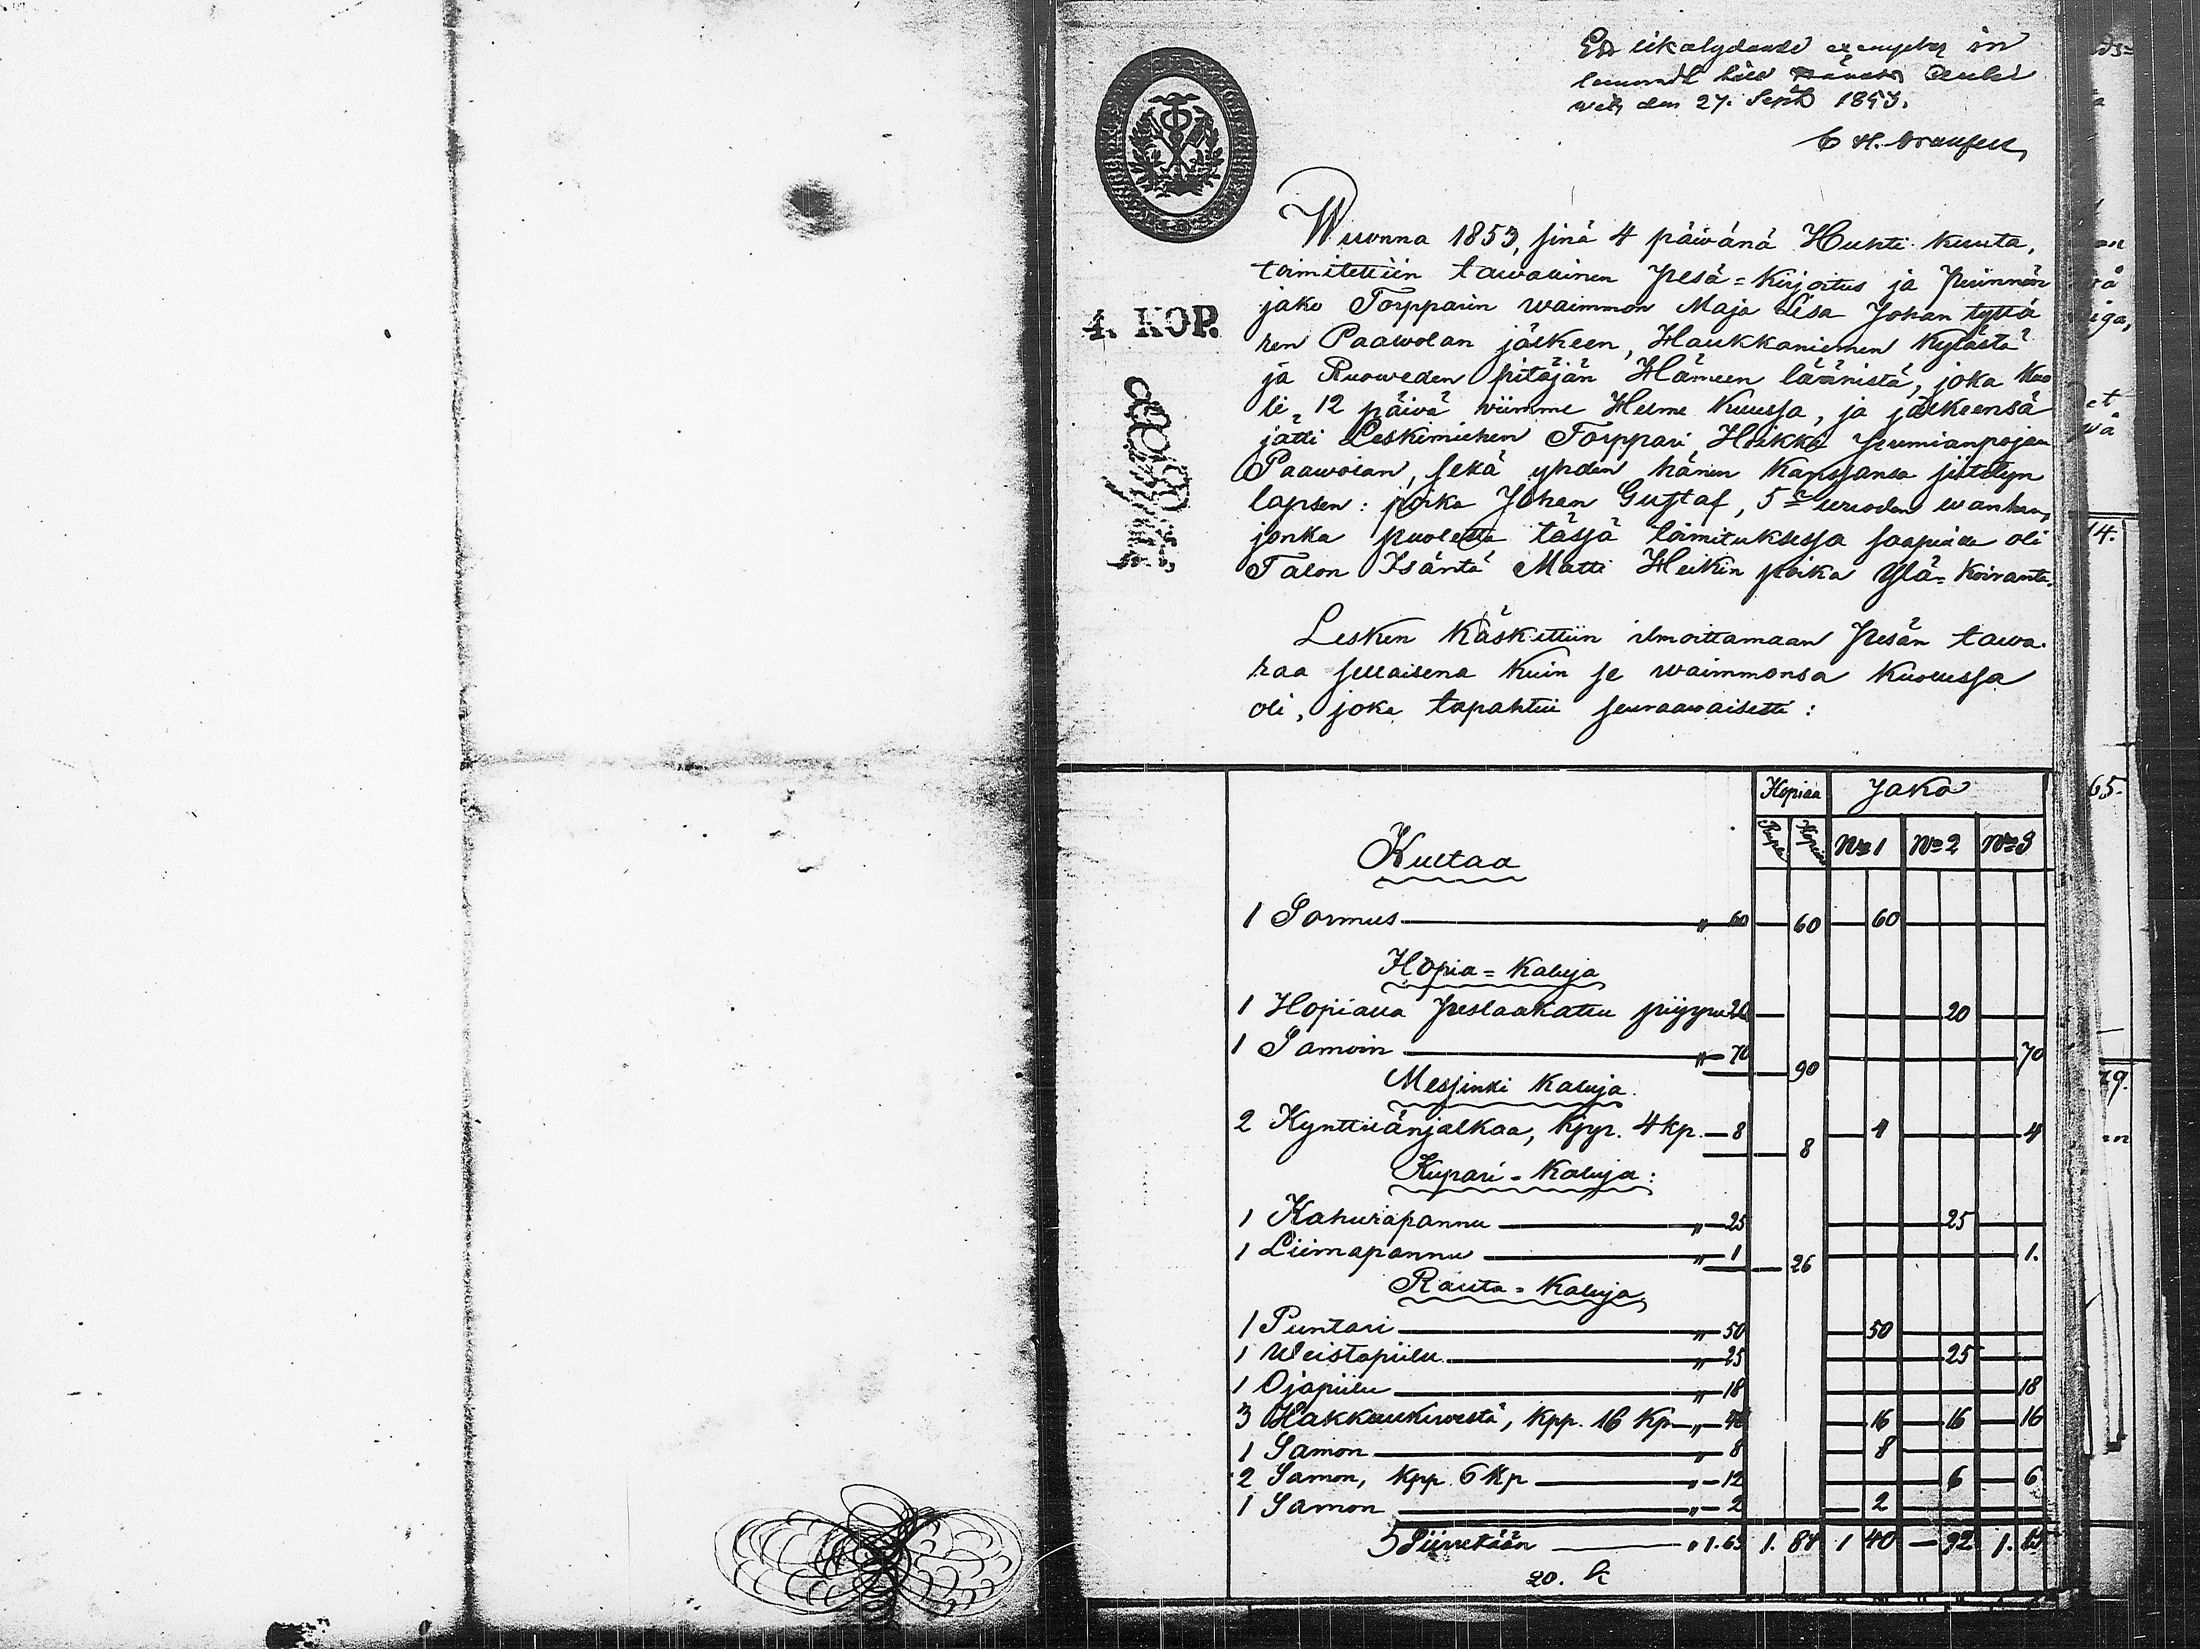 den 27. Sept 1853.
4. KOP.
Wuonna 1853, sinä 4 päivänä Huhti kuuta,
toimitettiin tawallinen Pesä=Kirjoitus ja Perinnön
jako Torpparin waimmon Maja Lisa Johan tyttä
ren Paawolan jälkeen, Haukkaniemen Kylästä
ja Ruoweden pitäjän Hämeen läänistä, joka Kuo
li 12 päivä wiimme Helme Kuussa, ja jälkeensä
jätti Leskimiehen Torppari Heikki Jeremianpojan
Paawolan, sekä yhden hänen Kanssansa siitetyn
lapsen: poika Johan Gustaf, 5 wuoden wanhan,
jonka puolesta tässä toimituksessa saapuilla oli
Talon Isäntä Matti Heikin poika Ylä=Koivanta.
Lesken Käskettiin ilmoittamaan Pesän tawa-
raa sellaisena kuin se waimmonsa Kuollussa
oli, joka tapahtui seuraawaisesti:
Hopiaa Jako
Rupla Kopias No 1 No 2 No 3
Kultaa
1 Sormus „ 60 60 60
Hopia=Kaluja
1 Hopialla Peslaakattu piippu 20 20
1 Samoin „ 70 90 70
Messinki Kaluja.
2 Kynttiänjalkaa, kpp. 4 kp. 8 8 4 4
Kupari-Kaluja:
1 Kahwiapannu „ 25 25
1 Liimapannu „ 1 26 1.
Rauta=Kaluja
1 Puntari „ 50 50
1 Weistopiilu „ 25 25
1 Ojapiilu „ 18 18
3 Hakkuukirwestä, kpp. 16 kp „ 48 16 16 16
1 Samon „ 8 8
2 Samon, kpp. 6 kp „ 12 6 6
1 Samon „ 2 2
Siirretään „ 1.63 1. 84 1 40 92 1. 15
20. k